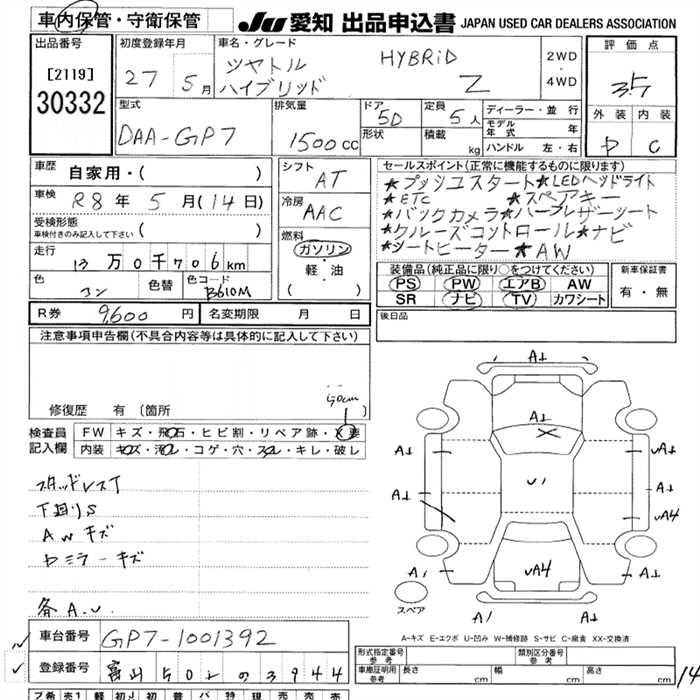 車内保管・守衛保管
JU 愛知 出品申込書 JAPAN USED CAR DEALERS ASSOCIATION
出品番号
[2119]
30332
初度登録年月
27 5月
車名・グレード
シャトル HYBRiD
ハイブリッド Z
2WD
・
4WD
評価点
3.5
外装 内装
C
型式
DAA-GP7
排気量
1500cc
ドア 5D
形状
定員 5人
積載 kg
ディーラー・並行
モデル年式 年
ハンドル 左・右
車歴
自家用・( )
車検
R8年 5月(14日)
受検形態
車検付きのみ記入して下さい ( )
走行
13万0千706km
色 色替 色コード
コン B610M
シフト
AT
冷房
AAC
燃料
ガソリン
・
軽・油
( )
セールスポイント(正常に機能するものに限ります)
★プッシュスタート★LEDヘッドライト
★ETC ★スペアキー
★バックカメラ★ハーフレザーシート
★クルーズコントロール★ナビ
★シートヒーター★AW
装備品(純正品に限り○をつけてください)
PS PW エアB AW
SR ナビ TV カワシート
新車保証書
有・無
R券 9,600円
名変期限 月 日
後日品
注意事項申告欄(不具合内容等は具体的に記入して下さい)
50cm
修復歴 有 (箇所
検査員
記入欄
FW キズ・飛石・ヒビ割・リペア跡・X要
内装 キズ・汚レ・コゲ・穴・スレ・キレ・破レ
スタッドレスT
下廻りS
AWキズ
ミラーキズ
各A.U.
A1
A1
A1 A1
A1 U1 UA4
A1 UA4 A1
スペア
A1 A1
A-キズ E-エクボ U-凹み W-補修跡 S-サビ C-腐食 XX-交換済
車台番号 GP7-1001392
登録番号 富山 501 の 3944
形式指定番号
参考
類別区分番号
参考
車庫証明用
参考
長さ cm 幅 cm 高さ cm
14